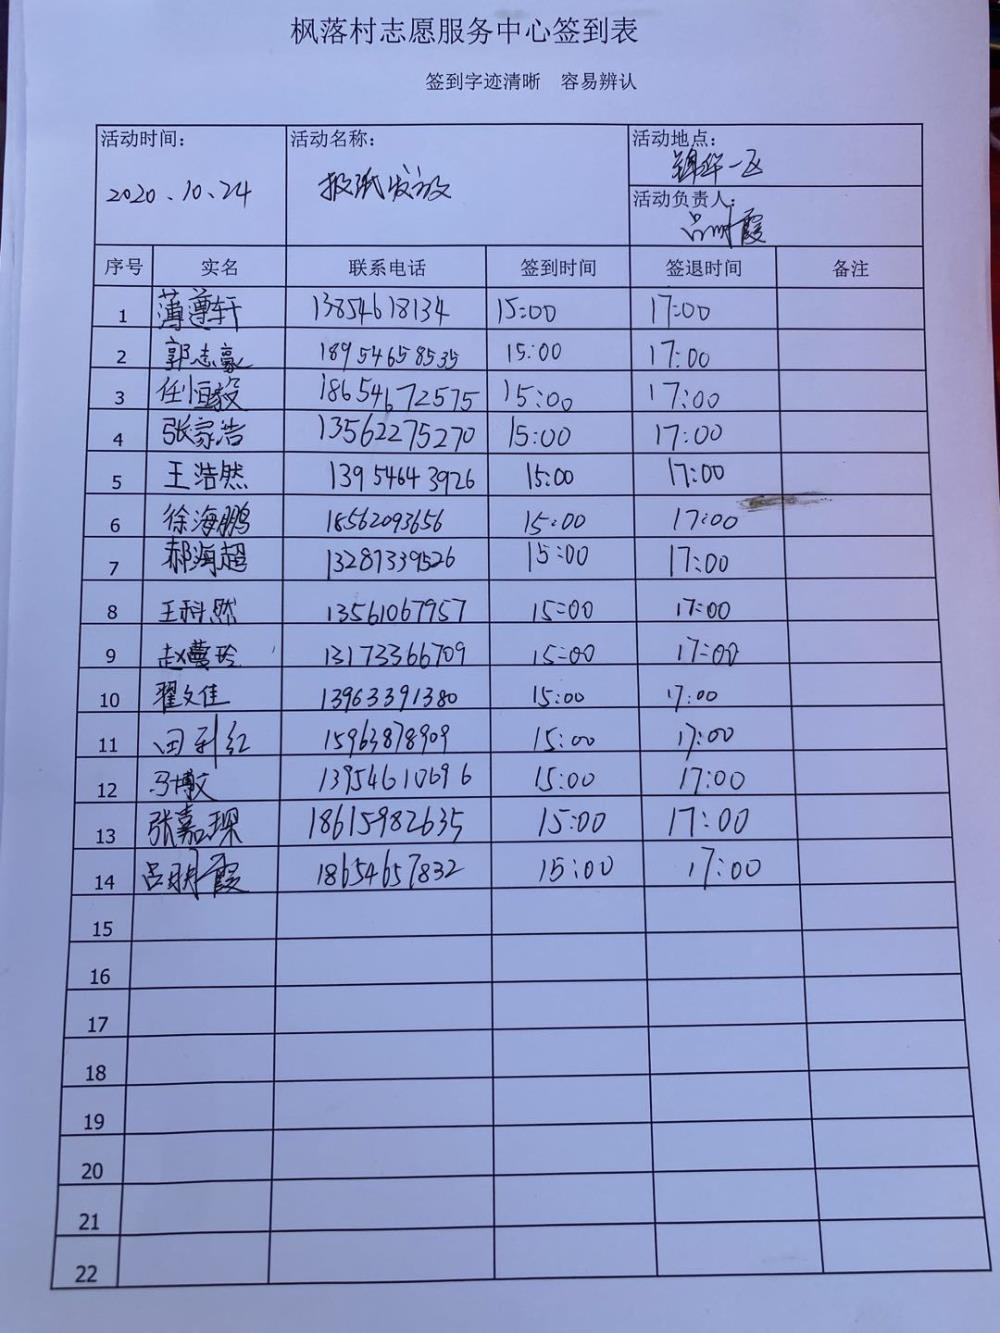 枫落村志愿服务中心签到表
签到字迹清晰 容易辨认
活动时间: 活动名称: 活动地点:
2020.10.24 报纸发放 锦华一区
活动负责人:
吕明霞
序号 实名 联系电话 签到时间 签退时间 备注
1 薄尊轩 13854618134 15:00 17:00
2 郭志豪 18954658535 15:00 17:00
3 任恒毅 18654672575 15:00 17:00
4 张家浩 13562275270 15:00 17:00
5 王浩然 13954643926 15:00 17:00
6 徐海鹏 18562093656 15:00 17:00
7 郝海超 13287339526 15:00 17:00
8 王科然 13561067957 15:00 17:00
9 赵蔓玲 13173366709 15:00 17:00
10 翟文佳 13963391380 15:00 17:00
11 田利红 15963878909 15:00 17:00
12 马博文 13954610696 15:00 17:00
13 张嘉琛 18615982635 15:00 17:00
14 吕明霞 18654657832 15:00 17:00
15
16
17
18
19
20
21
22